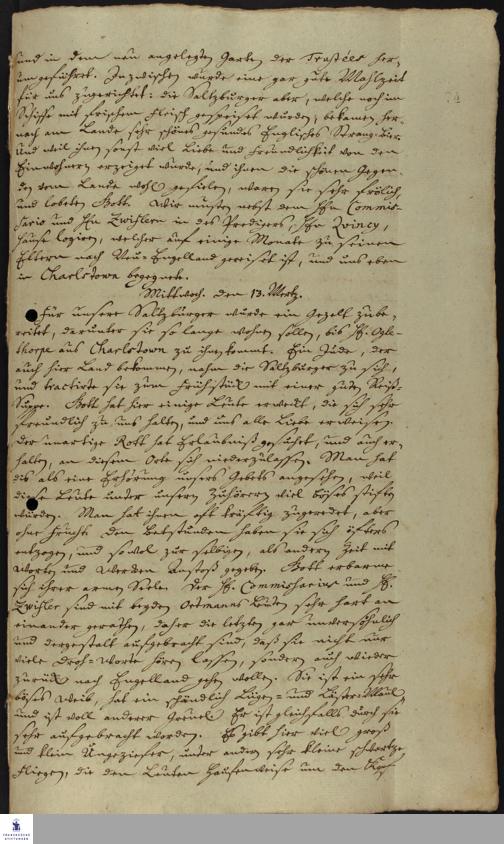 und in dem neu angelegten Garten der Trustees her-
umgeführet. Inzwischen wurde eine gar gute Mahlzeit
für uns zugerichtet: die Saltzburger aber, welche noch im
Schiffe mit frischem Fleisch gespeiset wurden, bekamen her-
nach am Lande sehr schönes gesundes Englisches Strang-Bier.
Und weil ihnen sonst viel Liebe und Freundlichkeit von den
Einwohnern erzeiget wurde, und ihnen die schönen Gegen-
den vom Lande wohl gefielen, waren sie sehr frölich,
und lobeten Gott. Wir musten nebst dem Hn Commis-
sario und Hn Zwiflern in des Predigers, Hn Qvincy,
Hause logiren, welcher auf einige Monate zu seinen
Eltern nach Neu-Engelland gereiset ist, und uns eben
in Charlstown begegnete.
Mittwoch. den 13. Mertz.
Für unsere Saltzburger wurde ein Gezelt zube-
reitet, darunter sie so lange wohnen sollen, bis H. Ogle-
thorpe aus Charlstown zu ihnen komt. Ein Jude, der
auch hier Land bekommen, nahm die Saltzburger zu sich,
und tractirte sie zum Frühstück mit einer guten Reiß-
Suppe. Gott hat hier einige Leute erweckt, die sich sehr
freundlich zu uns halten, und uns alle Liebe erweisen.
Der unartige Rott hat Erlaubniß gesuchet, und auch er-
halten, an diesem Orte sich niederzulassen. Man hat
dis als eine Erhörung unsers Gebets angesehen, weil
diese Leute unter unsern Zuhörern viel böses stiften
würden. Man hat ihnen oft kräftig zugeredet, aber
ohne Frucht. Den Betstunden haben sie sich öfters
entzogen, und sowol zur selbigen, als andern Zeit mit
Worten und Wercken Anstoß gegeben. Gott erbarme
sich ihrer armen Seele. Der H. Commissarius und H.
Zwifler sind mit beyden Ortmanns Leuten sehr hart an
einander gerathen, daher die letzten gar unversöhnlich
und dergestalt aufgebracht sind, daß sie nicht nur
viele Droh-Worte hören lassen, sondern auch wieder
zurück nach Engelland gehen wollen. Sie ist ein sehr
böses Weib, hat ein schändlich Lügen- und Läster-Maul
und ist voll anderer Greuel. Er ist gleichfalls durch sie
sehr aufgebracht worden. Es gibt hier viel groß
und klein Ungeziefer, unter andern sehr kleine schwartze
Fliegen, die den Leuten Haufenweise um den Kopf
FRANCKESCHE
STIFTUNGEN